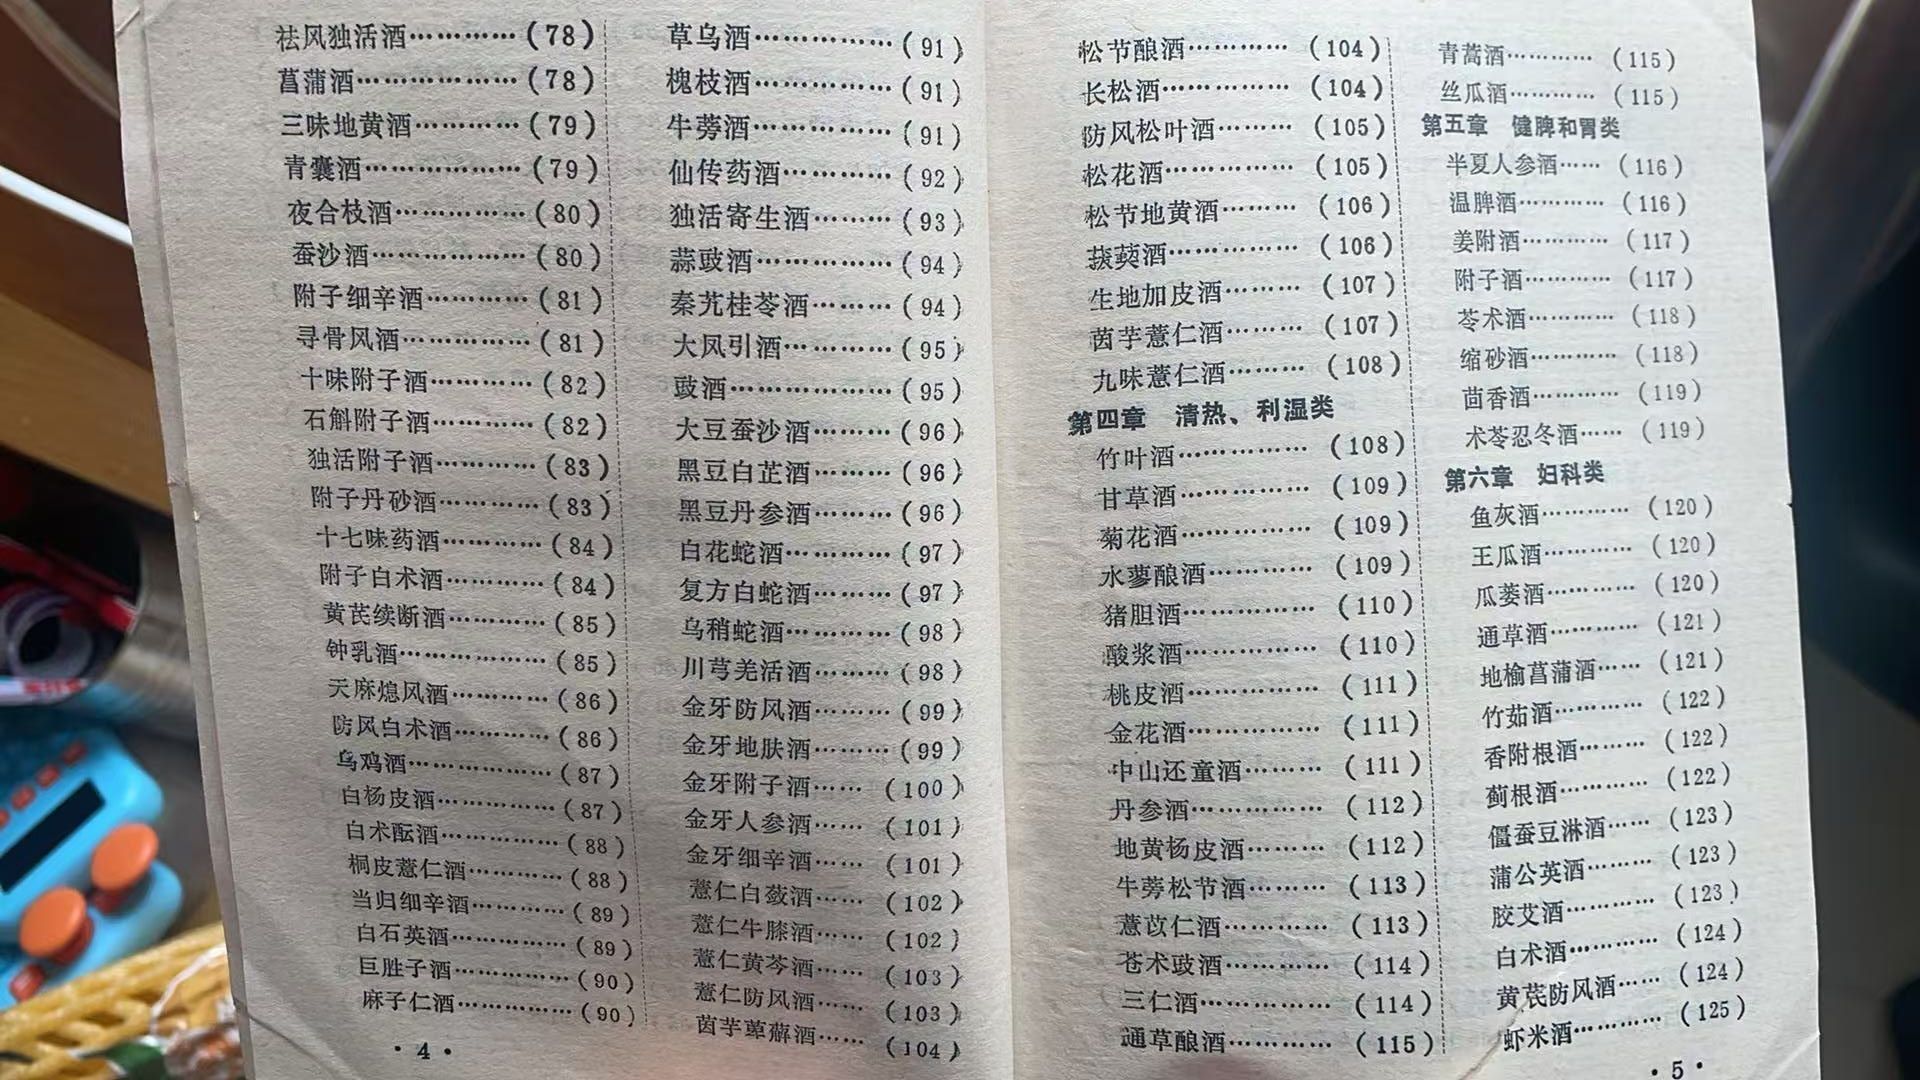 祛风独活酒…………(78)
菖蒲酒………………(78)
三味地黄酒…………(79)
青囊酒………………(79)
夜合枝酒……………(80)
蚕沙酒………………(80)
附子细辛酒…………(81)
寻骨风酒……………(81)
十味附子酒…………(82)
石斛附子酒…………(82)
独活附子酒…………(83)
附子丹砂酒…………(83)
十七味药酒…………(84)
附子白术酒…………(84)
黄芪续断酒…………(85)
钟乳酒………………(85)
天麻熄风酒…………(86)
防风白术酒…………(86)
乌鸡酒………………(87)
白杨皮酒……………(87)
白术酝酒……………(88)
桐皮薏仁酒…………(88)
当归细辛酒…………(89)
白石英酒……………(89)
巨胜子酒……………(90)
麻子仁酒……………(90)
·4·
草乌酒………………(91)
槐枝酒………………(91)
牛蒡酒………………(91)
仙传药酒……………(92)
独活寄生酒…………(93)
蒜豉酒………………(94)
秦艽桂苓酒…………(94)
大风引酒……………(95)
豉酒…………………(95)
大豆蚕沙酒…………(96)
黑豆白芷酒…………(96)
黑豆丹参酒…………(96)
白花蛇酒……………(97)
复方白蛇酒…………(97)
乌稍蛇酒……………(98)
川芎羌活酒…………(98)
金牙防风酒…………(99)
金牙地肤酒…………(99)
金牙附子酒……(100)
金牙人参酒……(101)
金牙细辛酒……(101)
薏仁白蔹酒……(102)
薏仁牛膝酒……(102)
薏仁黄芩酒……(103)
薏仁防风酒……(103)
茵芋萆薢酒……(104)
松节酿酒…………(104)
长松酒……………(104)
防风松叶酒………(105)
松花酒……………(105)
松节地黄酒………(106)
菝葜酒……………(106)
生地加皮酒………(107)
茵芋薏仁酒………(107)
九味薏仁酒………(108)
第四章 清热、利湿类
竹叶酒……………(108)
甘草酒……………(109)
菊花酒……………(109)
水蓼酿酒…………(109)
猪胆酒……………(110)
酸浆酒……………(110)
桃皮酒……………(111)
金花酒……………(111)
中山还童酒………(111)
丹参酒……………(112)
地黄杨皮酒………(112)
牛蒡松节酒………(113)
薏苡仁酒…………(113)
苍术豉酒…………(114)
三仁酒……………(114)
通草酿酒…………(115)
青蒿酒…………(115)
丝瓜酒…………(115)
第五章 健脾和胃类
半夏人参酒……(116)
温脾酒…………(116)
姜附酒…………(117)
附子酒…………(117)
苓术酒…………(118)
缩砂酒…………(118)
茴香酒…………(119)
术苓忍冬酒……(119)
第六章 妇科类
鱼灰酒…………(120)
王瓜酒…………(120)
瓜蒌酒…………(120)
通草酒…………(121)
地榆菖蒲酒……(121)
竹茹酒…………(122)
香附根酒………(122)
蓟根酒…………(122)
僵蚕豆淋酒……(123)
蒲公英酒………(123)
胶艾酒…………(123)
白术酒…………(124)
黄芪防风酒……(124)
虾米酒…………(125)
·5·